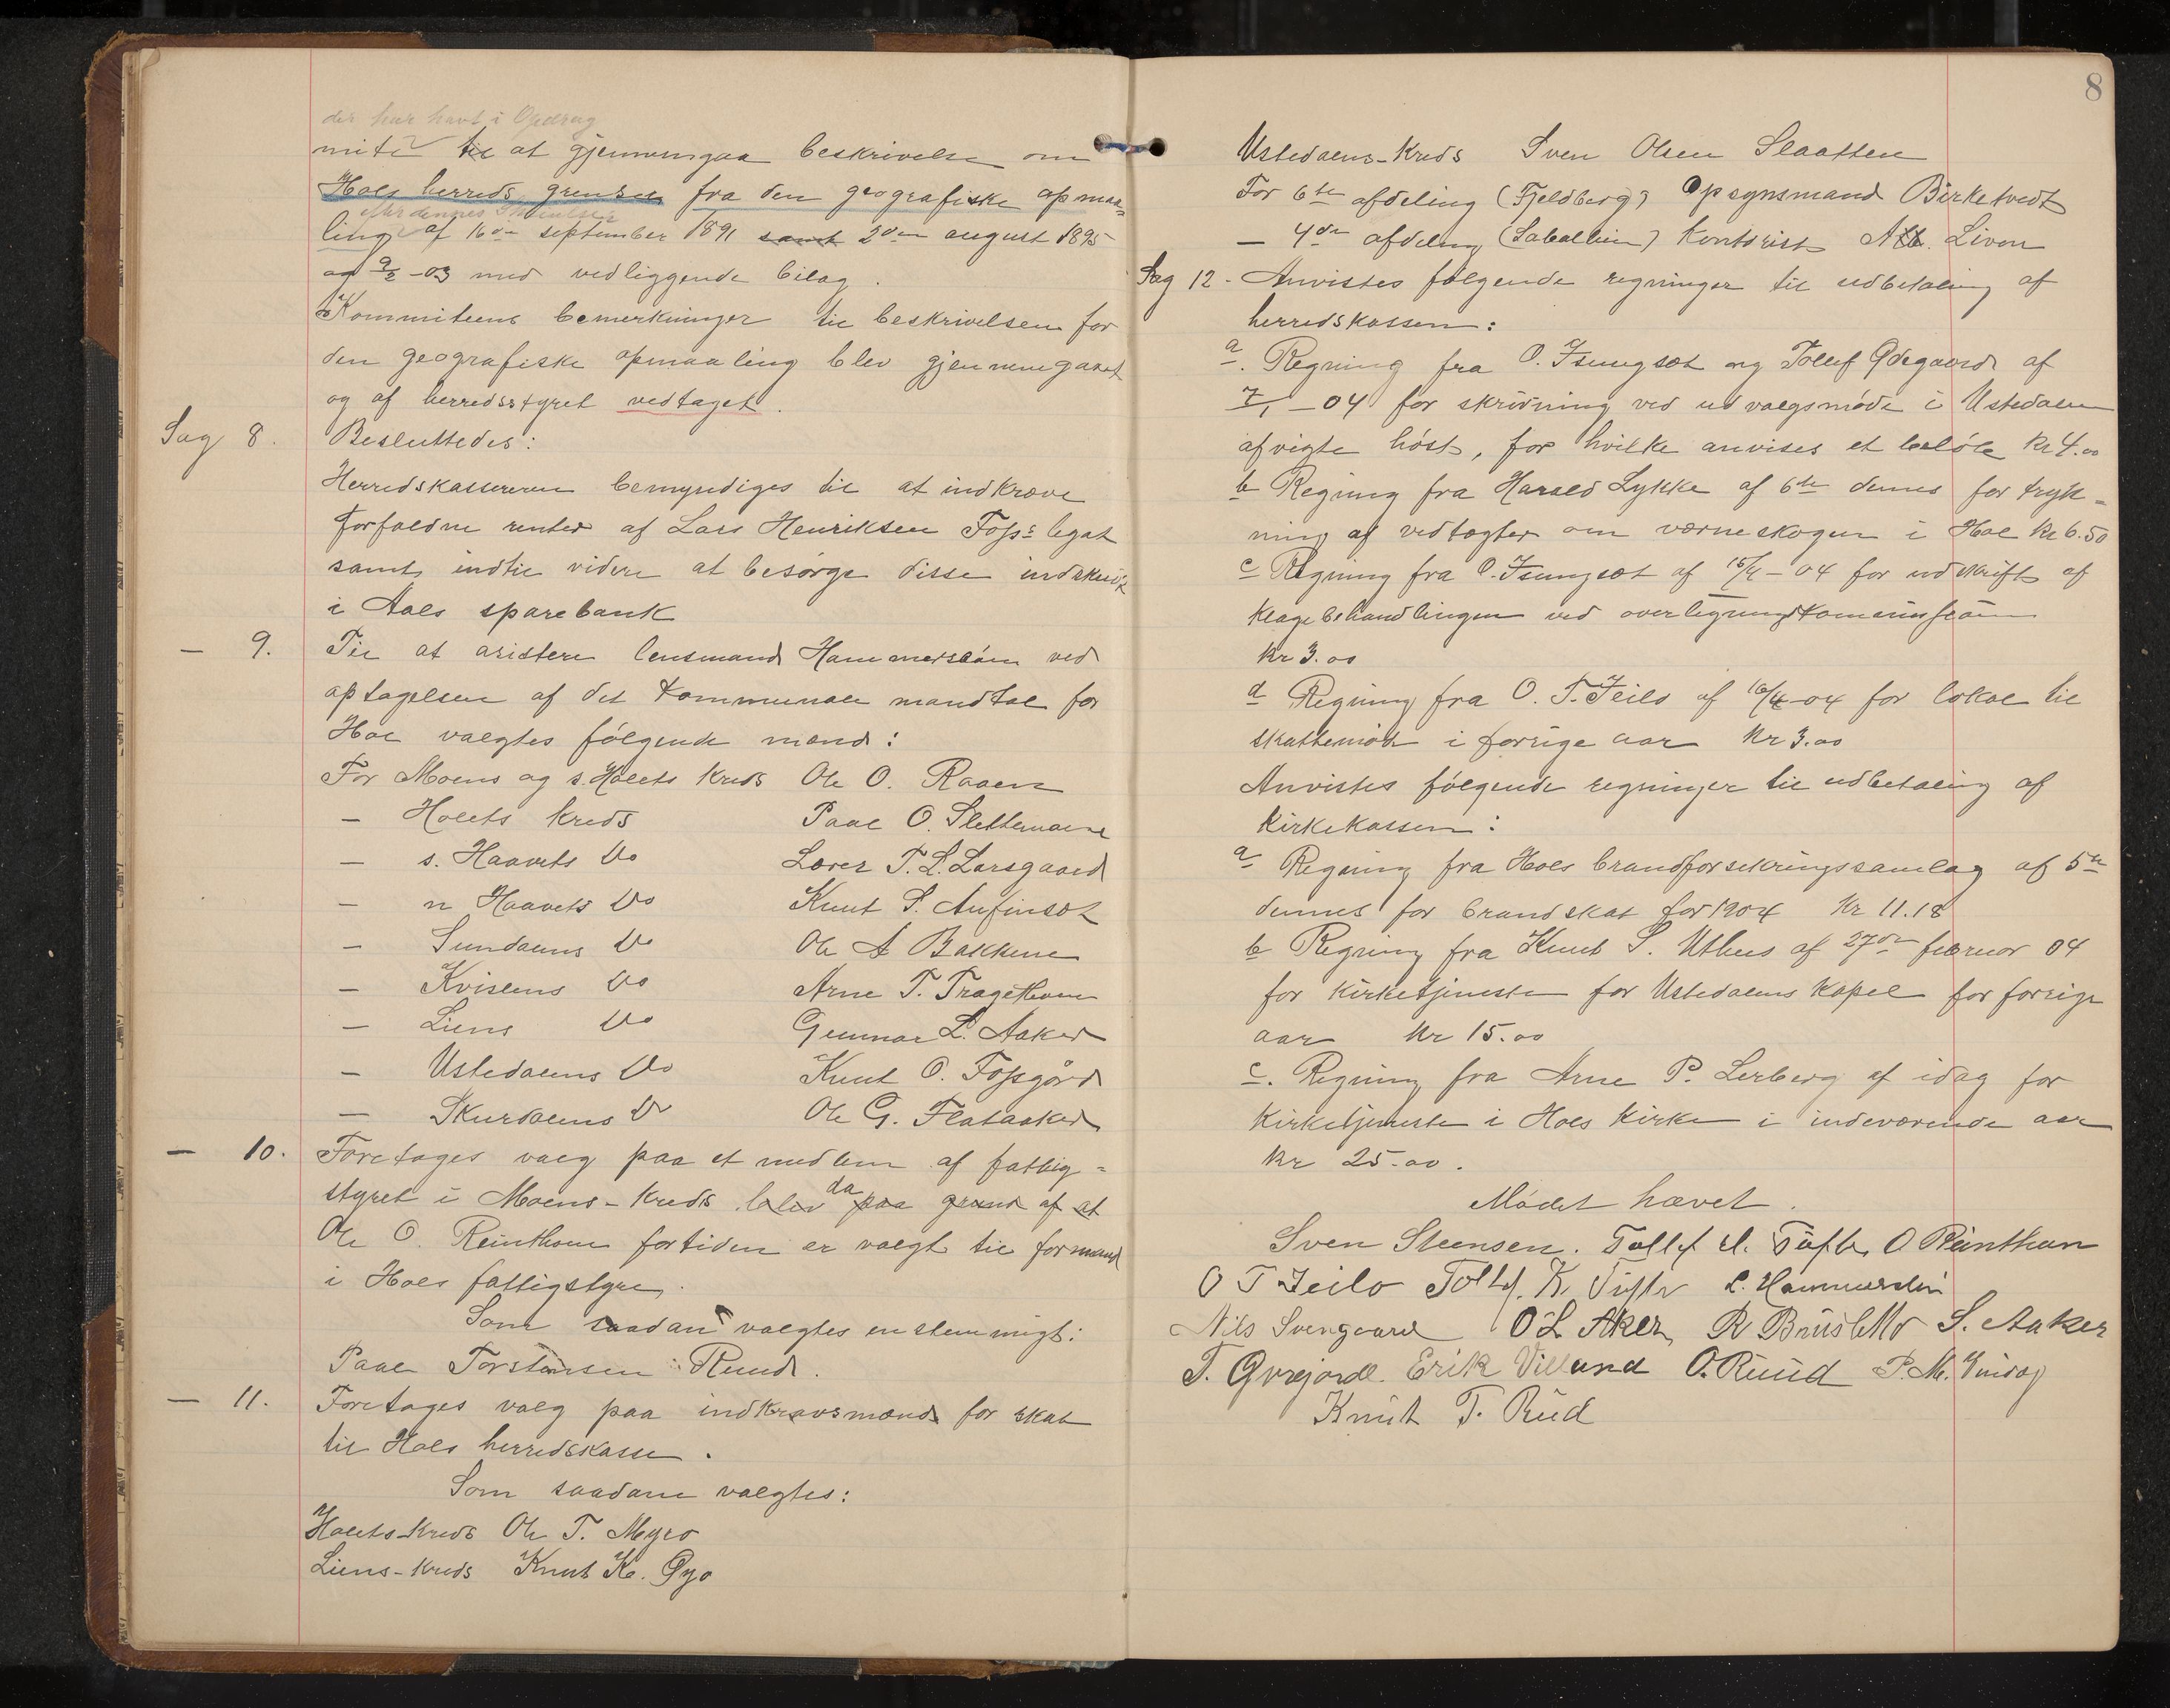 der har havt i Opdrag
mite til at gjennemgaa beskrivelse om
Hols herreds grenser fra den geografiske opmaa-
ling efter dennes
af 16de september 1891 samt 2den august 1895
og 9/2 -03 med vedliggende bilag.
Kommiteens bemerkninger til beskrivelsen for
den geografiske opmaaling blev gjennemgaaet
og af herredsstyret vedtaget.
Sag 8. Besluttedes:
Herredskassereren bemyndiges til at indkræve
forfaldne renter af Lars Henriksen Foss's legat
samt indtil videre at besørge disse indskudt
i Aals sparebank
— 9. Til at assistere lensmand Hammersbøen ved
optagelsen af det kommunale mandtal for
Hol valgtes følgende mænd:
For Moens og s. Holets Kreds Ole O. Raaen
— Holets Kreds Paal O. Slettemoen
— s. Haavets Do Lærer T. L. Larsgaard
— n Haavets Do Knut S. Anfinset
— Sundalens Do Ole A Bakkene
— Kvislens Do Arne T. Tragethon
— Liens Do Gunnar L. Aaker
— Ustedalens Do Knut O. Fossgård
— Skurdalens Do Ole G. Flataaker
— 10. Foretages valg paa et medlem af fattig-
styret i Moens-Kreds blev da paa grund af at
Ole O. Reinthon for tiden er valgt til formand
i Hols fattigstyre.
Som saadan valgtes enstemmigt:
Paal Torstensen Ruud.
— 11. Foretages valg paa indkrævsmænd for skat
til Hols herredskasse.
Som saadane valgtes:
Holets-Kreds Ole T. Myro
Liens-Kreds Knut K. Gyo
8
Ustedalens-Kreds Sven Olsen Slaatten
For 6te afdeling (Fjeldberg) Opsynsmand Birketvedt
— 4de afdeling Kontorist Livon
Sag 12. Anvistes følgende regninger til udbetaling af
herredskassen:
a. Regning fra O. Isungset og Tollef Ødegaard af
7/1 -04 for skrivning ved udvalgsmøde i Ustedalen
afvigte høst, for hvilke anvises et beløb kr 4.00
b Regning fra Harald Lykke af 6te dennes for tryk-
ning af vedtægter om værneskogen i Hol kr 6.50
c Regning fra O. Isungset af 15/4 -04 for udskrift af
klagebehandlingen ved overligningskommissionen
kr 3.00
d Regning fra O. T. Jeilo af 16/4 -04 for lokal til
skattemøde i forrige aar Kr 3.00
Anvistes følgende regninger til udbetaling af
Kirkekassen:
a Regning fra Hols brandforsikringssamlag af 5te
dennes for brandskat for 1904 Kr 11.18
b Regning fra Knut S. Uthus af 27de februar 04
for kirketjeneste for Ustedalens Kapel for forrige
aar Kr 15.00
c. Regning fra Arne P. Lerberg af idag for
Kirketjeneste i Hols Kirke i indeværende aar
Kr 25.00.
Mødet hævet.
Sven Steensen. Tollef A. Tufte O Reinthon
O T Jeilo Tollef. K. Tufte L. Hammersbøn
Nils Svengaard O L Aker R Brusletto S. Aaker
T. Gvrejorde. Erik Villand O. Ruud P. M.
Knut T. Rud